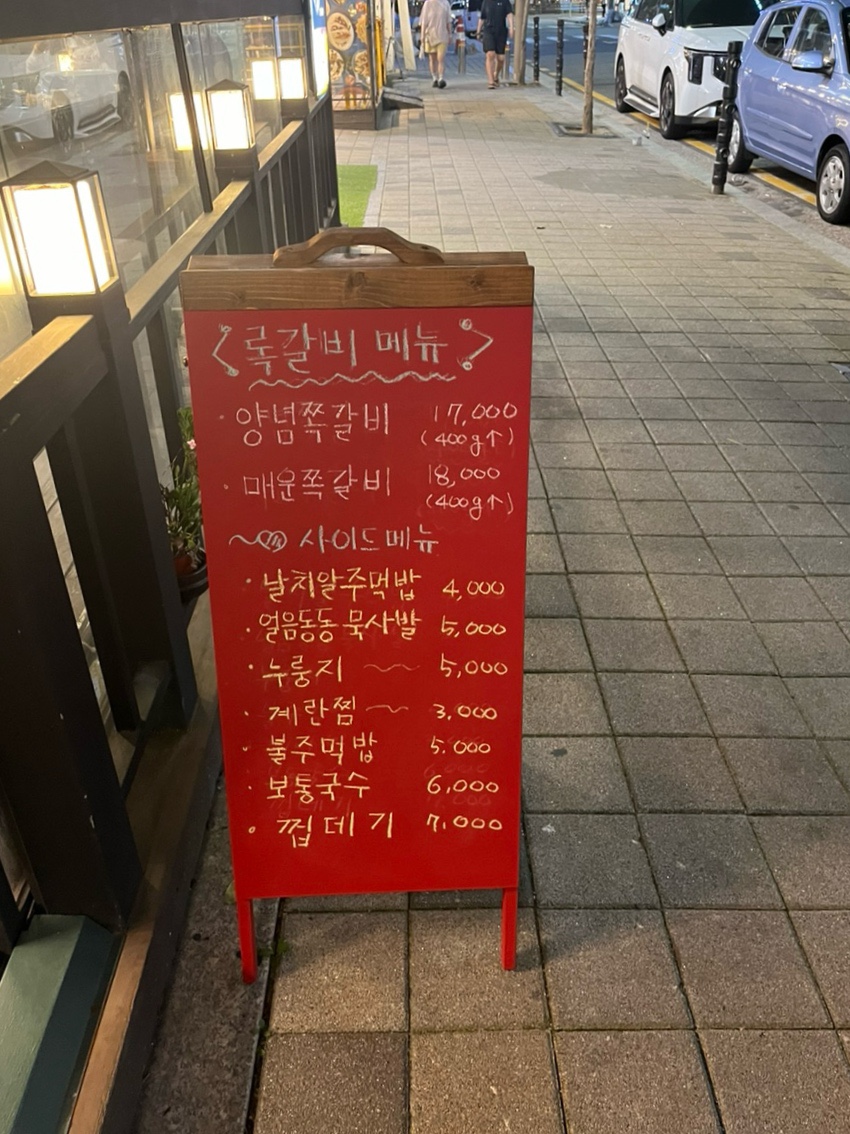 <록갈비 메뉴>
· 양념쪽갈비 17,000
(400g↑)
· 매운쪽갈비 18,000
(400g↑)
~ 사이드메뉴
· 날치알주먹밥 4,000
· 얼음동동 묵사발 5,000
· 누룽지 ~ 5,000
· 계란찜 ~ 3,000
· 불주먹밥 5.000
· 보통국수 6,000
· 찝데기 7,000